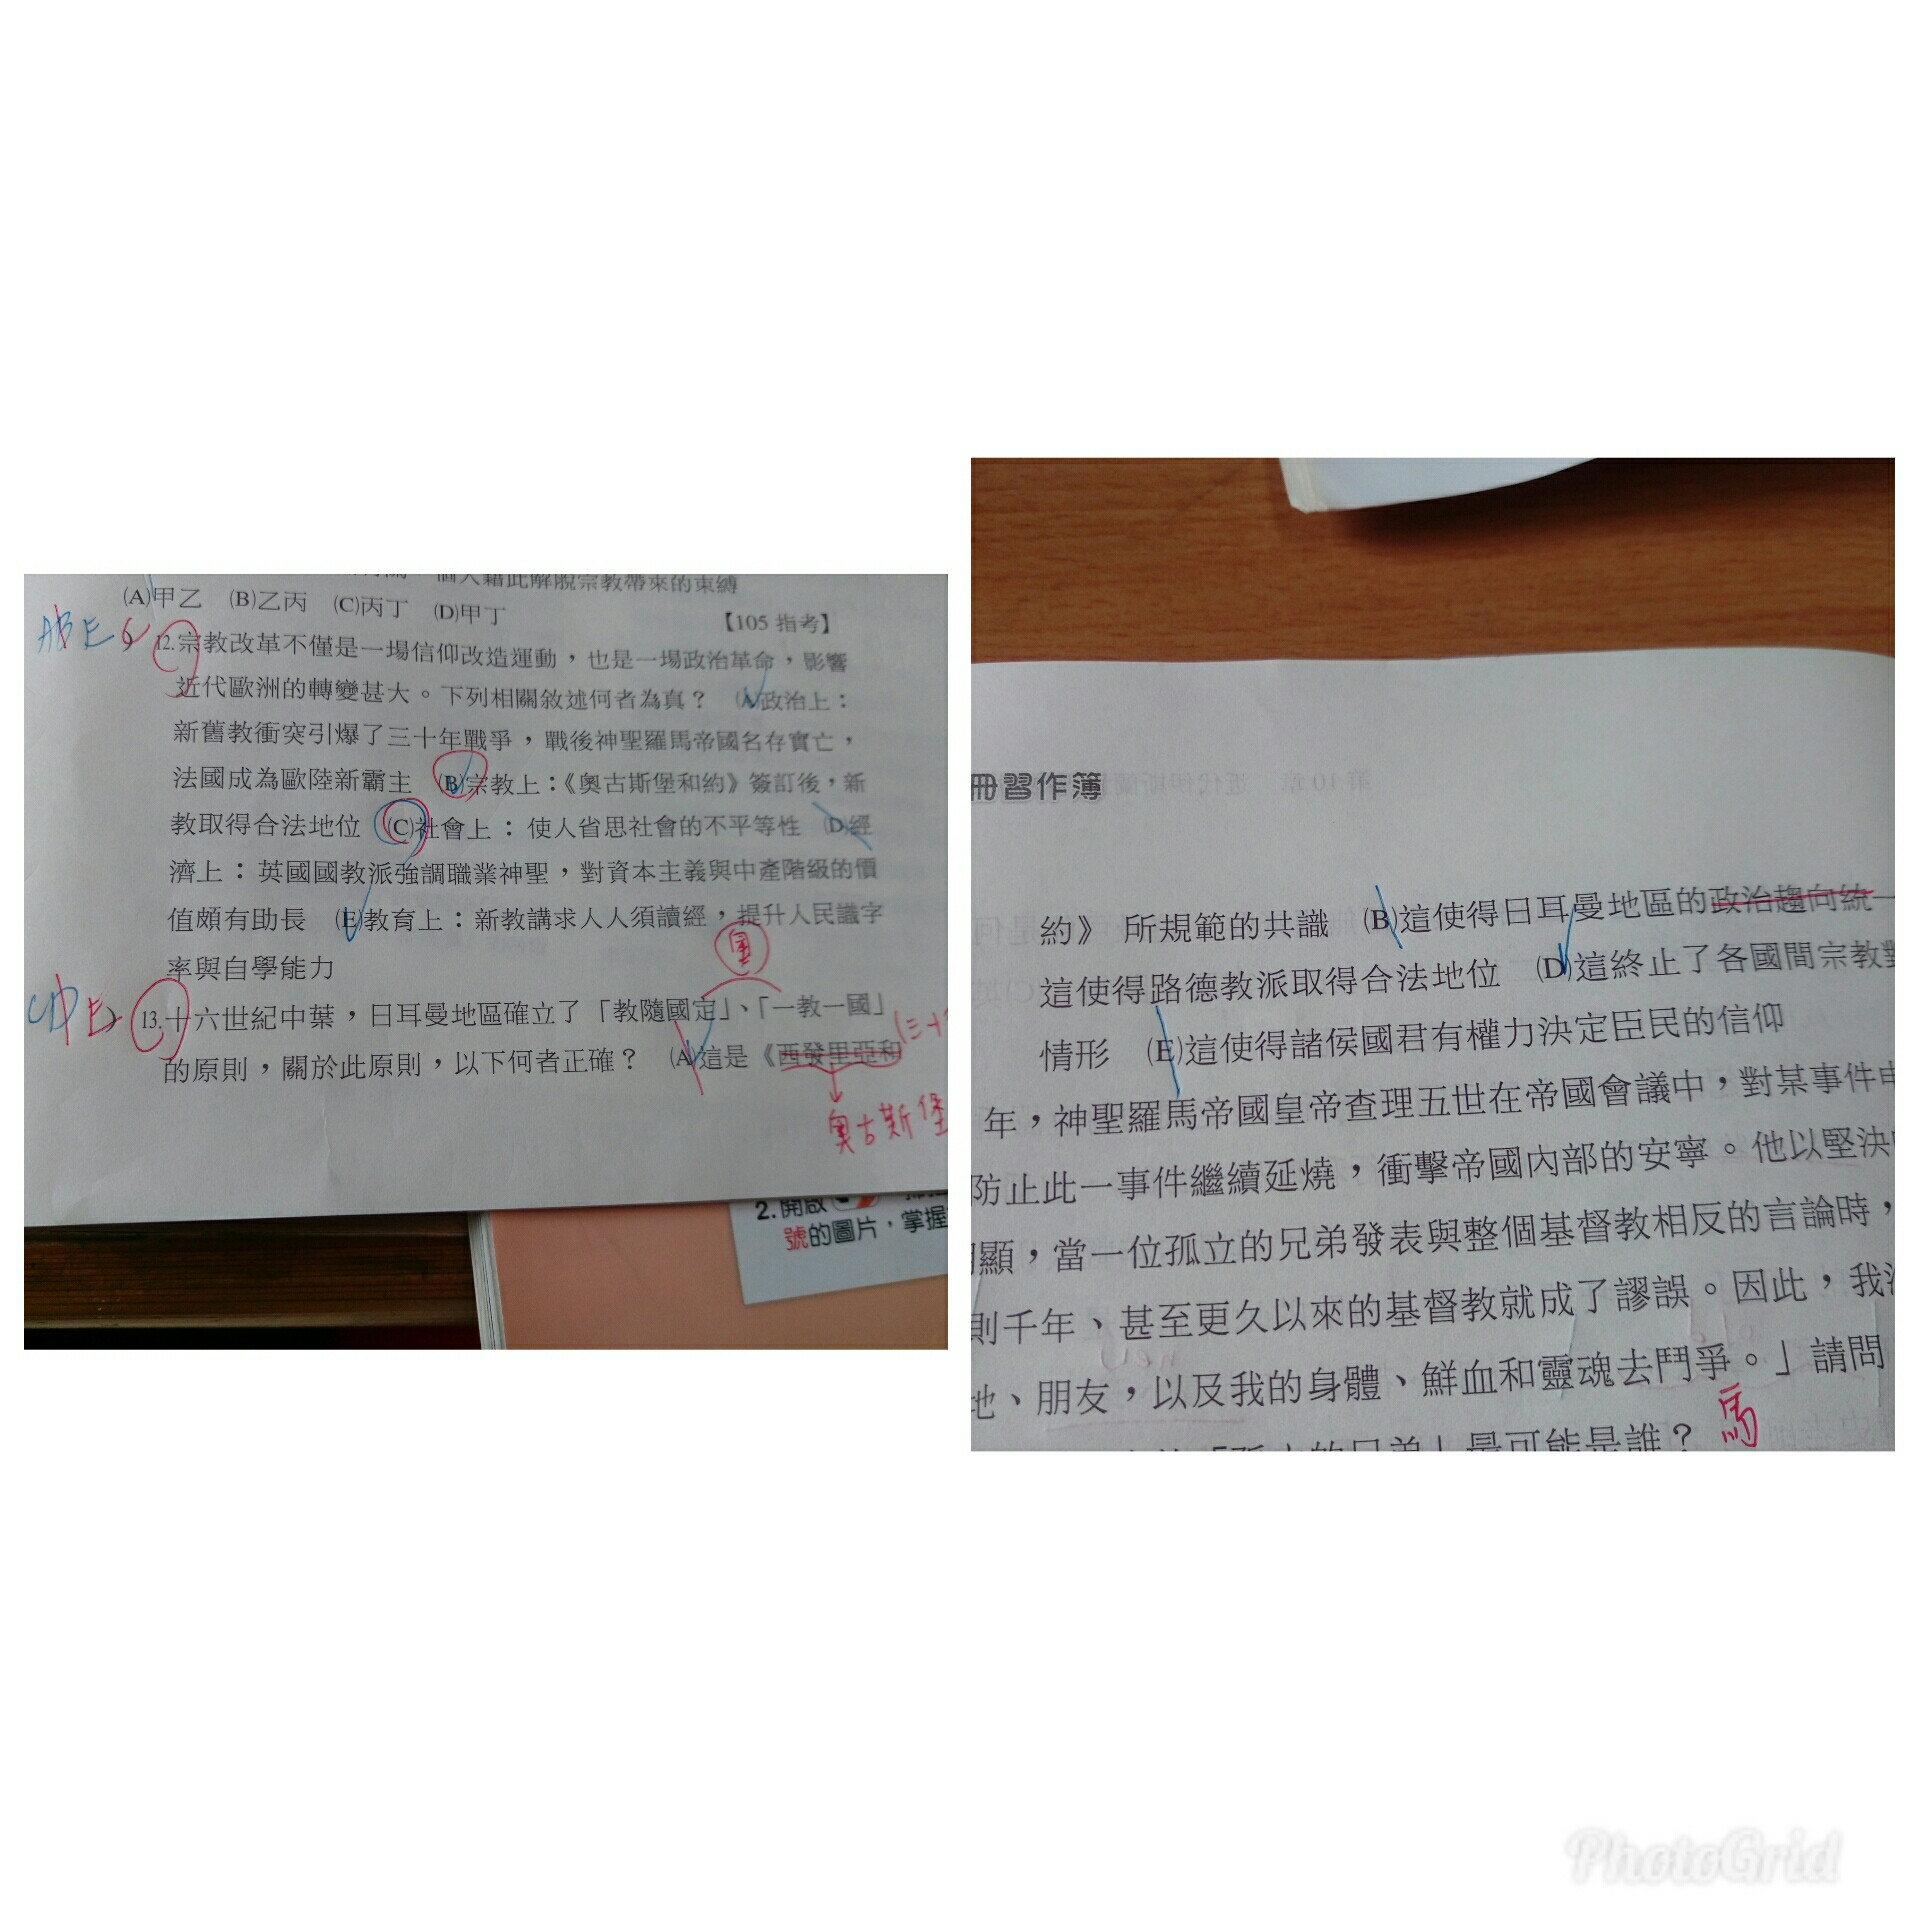 個人藉此解脫宗教帶來的束縛
(A)甲乙 (B)乙丙 (C)丙丁 (D)甲丁
【105 指考】
ABE C 12.宗教改革不僅是一場信仰改造運動，也是一場政治革命，影響
近代歐洲的轉變甚大。下列相關敘述何者為真？ (A)政治上：
新舊教衝突引爆了三十年戰爭，戰後神聖羅馬帝國名存實亡，
法國成為歐陸新霸主 (B)宗教上：《奧古斯堡和約》簽訂後，新
教取得合法地位 (C)社會上：使人省思社會的不平等性 (D)經
濟上：英國國教派強調職業神聖，對資本主義與中產階級的價
值頗有助長 (E)教育上：新教講求人人須讀經，提升人民識字
率與自學能力
CDE 13.十六世紀中葉，日耳曼地區確立了「教隨國定」、「一教一國」
的原則，關於此原則，以下何者正確？ (A)這是《西發里亞和
奧古斯堡
2.開啟
號的圖片，掌握
冊習作簿
約》所規範的共識 (B)這使得日耳曼地區的政治趨向統一
這使得路德教派取得合法地位 (D)這終止了各國間宗教對
情形 (E)這使得諸侯國君有權力決定臣民的信仰
年，神聖羅馬帝國皇帝查理五世在帝國會議中，對某事件申
防止此一事件繼續延燒，衝擊帝國內部的安寧。他以堅決
顯，當一位孤立的兄弟發表與整個基督教相反的言論時，
則千年、甚至更久以來的基督教就成了謬誤。因此，我
地、朋友，以及我的身體、鮮血和靈魂去鬥爭。」請問
的兄弟」最可能是誰？ 馬
PhotoGrid